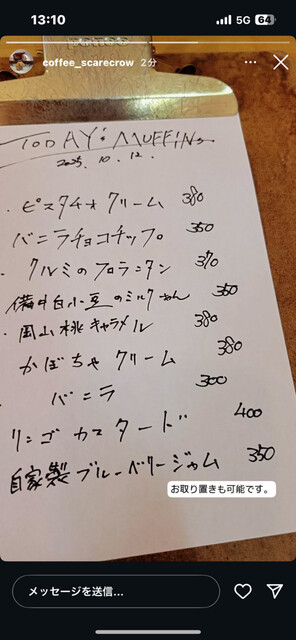 13:10
5G 64
coffee_scarecrow 2分
TODAY'S MUFFINS
2025. 10. 12.
・ピスタチオクリーム 380
バニラチョコチップ。 350
・クルミのフロランタン 370
備中白小豆のミルクあん 350
・岡山桃キャラメル 380
かぼちゃクリーム 380
・バニラ 300
リンゴカスタード 400
自家製ブルーベリージャム 350
お取り置きも可能です。
メッセージを送信...